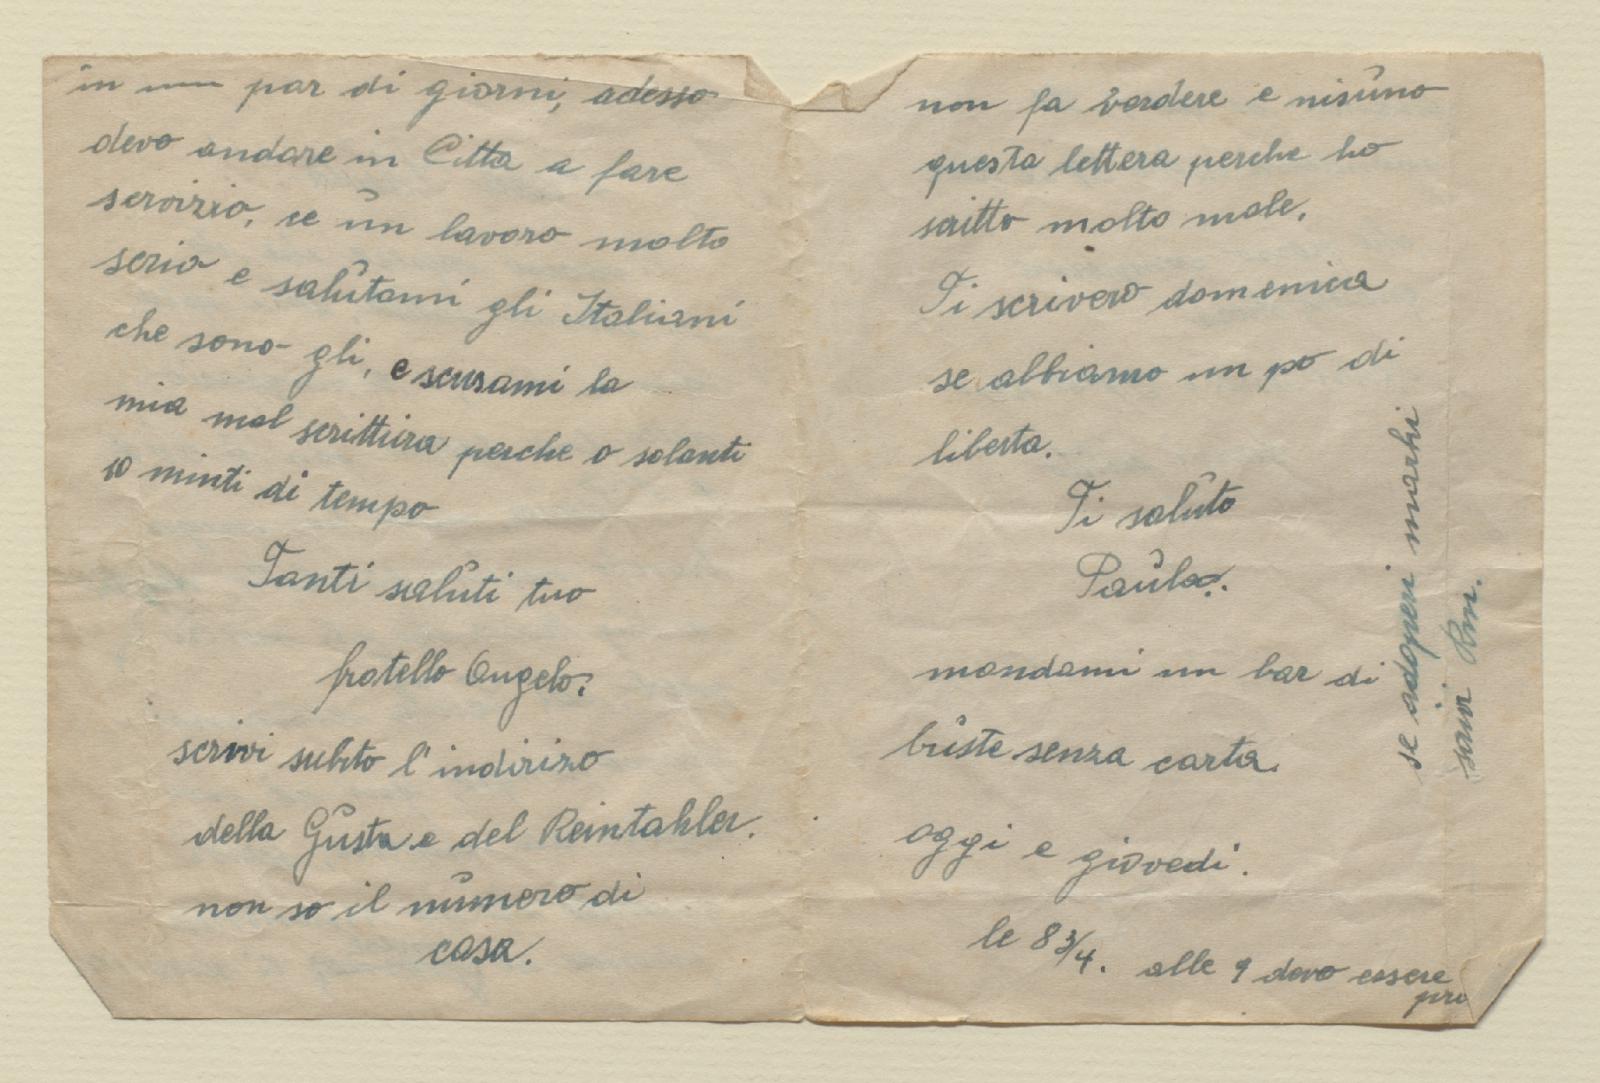 in un par di giorni, adesso
devo andare in Citta a fare
servizio, ce un lavoro molto
serio e salutami gli Italiani
che sono gli, e scusami la
mia mal scrittura perche o solanti
10 minti di tempo
Tanti saluti tuo
fratello Angelo.
scrivi subito l'indirizo
della Gusta e del Reintahler.
non so il numero di
casa.
non fa verdere e nisuno
questa lettera perche ho
scritto molto male.
Ti scrivero domenica
se abbiamo un po di
liberta.
Ti saluto
Paula.
mandami un bar di
buste senza carta.
oggi e giovedi.
le 8 3/4. alle 9 devo essere
se adoperi marki
Rm.